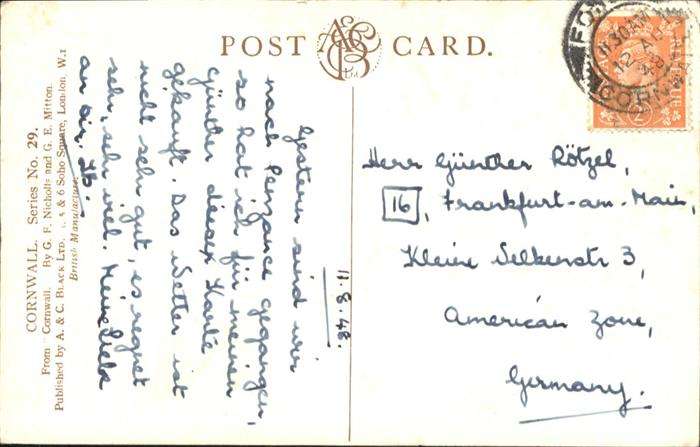 POST CARD.
A&CB Ltd
CORNWALL. Series No. 29.
From "Cornwall. By G. F. Nicholls and G. E. Mitton.
Published by A. & C. BLACK LTD. & 6 Soho Square, London, W.1
British Manufacture.
11.8.48.
Gestern sind wir
nach Penzance gegangen,
so hat ich für meinen
Günther diesen Karte
gekauft. Das Wetter ist
nicht sehr gut, es regnet
sehr, sehr viel. Meine
an dir.
11 30 AM
12 A
48
CORNWALL
Herr Günther Rötzel,
16, Frankfurt-am-Main,
Kleine Nelkenstr 3,
American Zone,
Germany.